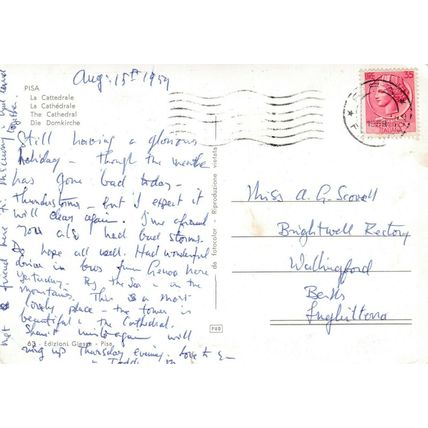 PISA
La Cattedrale
La Cathédrale
The Cathedral
Die Domkirche
Aug: 15th 1959
Still having a glorious
holiday - though the weather
has gone bad today -
thunderstorms - but I'd expect it
will clear again. I'm afraid
you also had bad storms.
I hope all well. Had wonderful
drive in bus from Genoa here
yesterday - By the Sea - in the
mountains. This is a most
lovely place - the tower is
beautiful & the Cathedral.
Shan't write again will
ring up Thursday evening. Love to
met a friend here
together
63 - Edizioni - Pisa
da fotocolor - Riproduzione vietata
35
Miss A. G. Scovell
Brightwell Rectory
Wallingford
Berks
Inghilterra